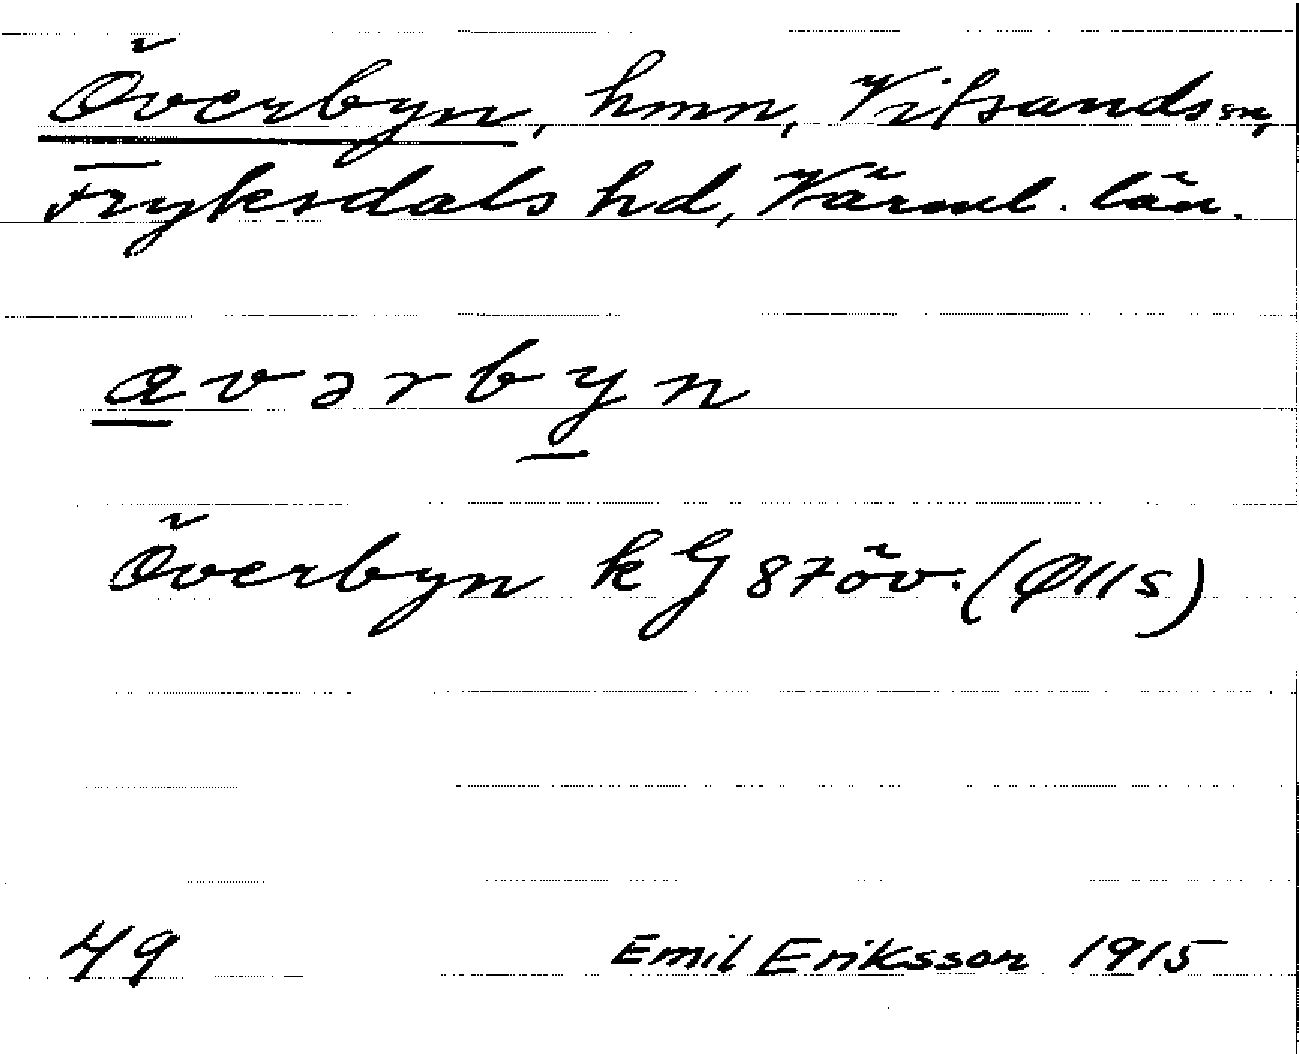 Överbyn, hmn, Vitsands sn,
Fryksdals hd, Värml. län.
avərbyn
Överbyn k G 87 öv. (Ø11s)
49 Emil Eriksson 1915